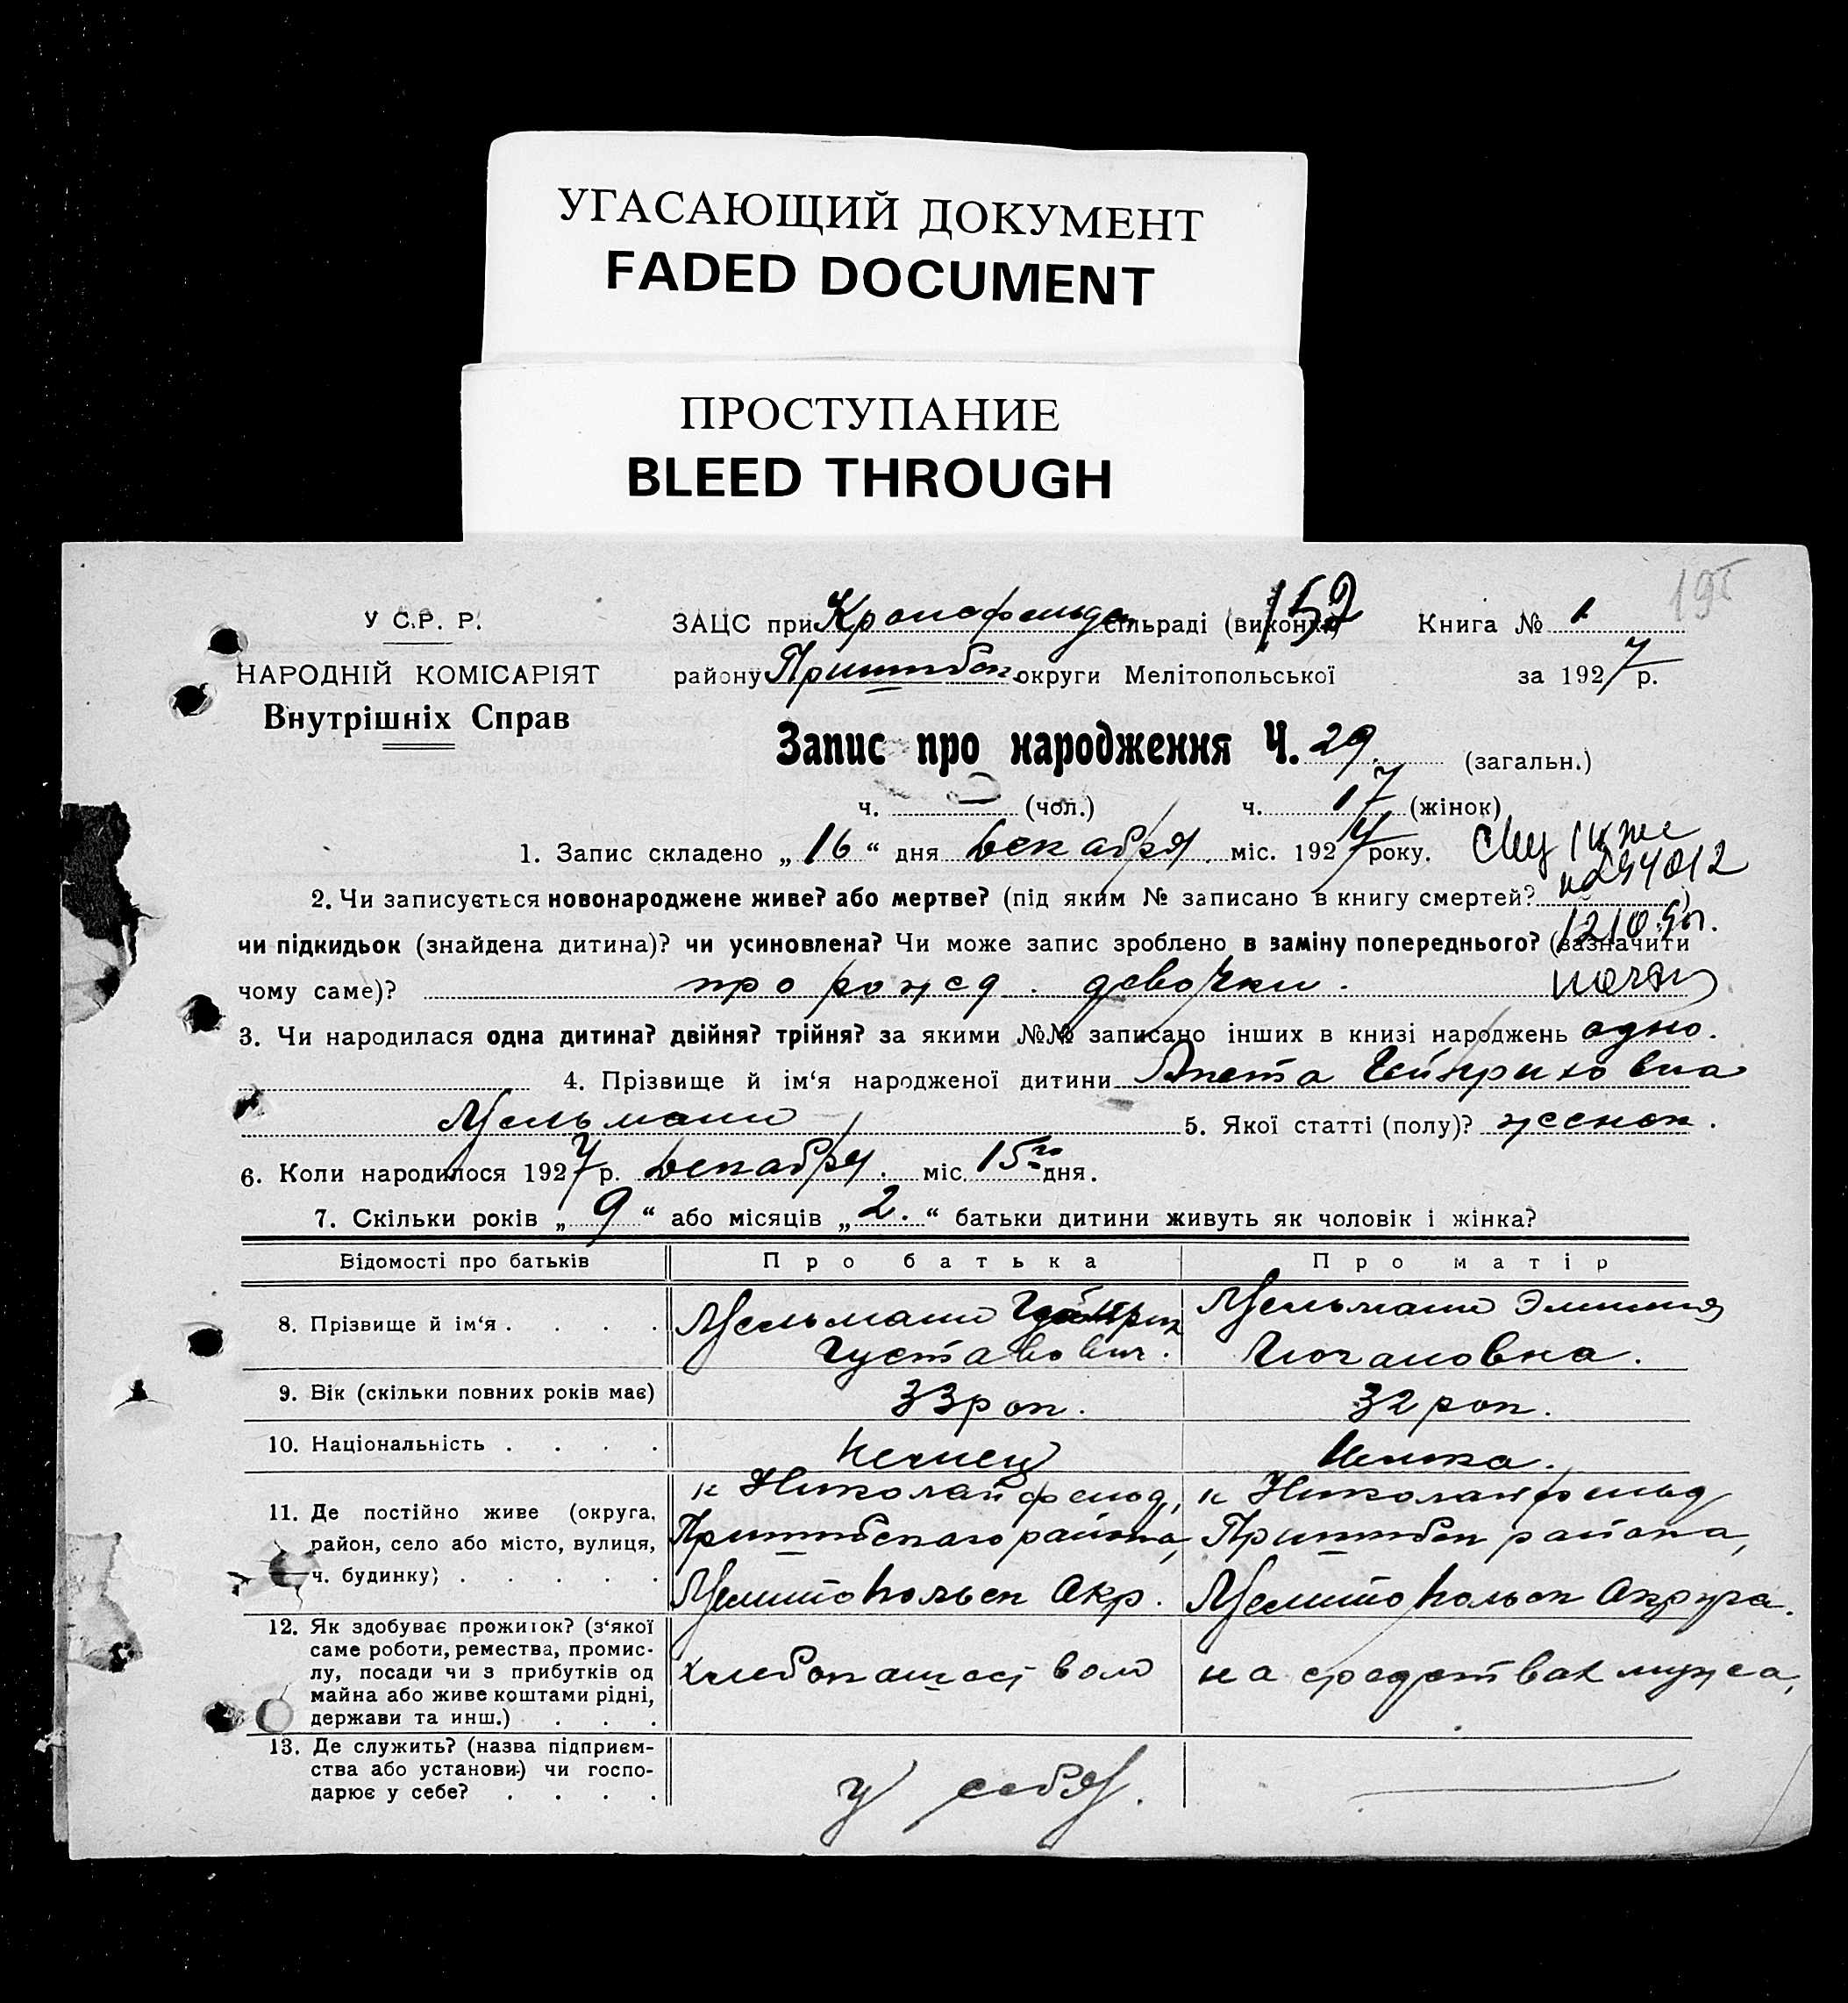 УГАСАЮЩИЙ ДОКУМЕНТ
FADED DOCUMENT
ПРОСТУПАНИЕ
BLEED THROUGH
195
У С.Р. Р.
НАРОДНІЙ КОМІСАРІЯТ
Внутрішніх Справ
ЗАЦС при Кронсфельдс сільраді (виконк.) 152 Книга № 1
району Пришибск. округи Мелітопольської за 1927 р.
Запис про народження Ч. 29. (загальн.)
ч. (чол.) ч. 17 (жінок)
1. Запис складено „16“ дня декабря. міс. 1927 року.
2. Чи записується новонароджене живе? або мертве? (під яким № записано в книгу смертей? )
чи підкидьок (знайдена дитина)? чи усиновлена? Чи може запис зроблено в заміну попереднього? (зазначити
чому саме)? про рожед. девочки.
3. Чи народилася одна дитина? двійня? трійня? за якими №№ записано інших в книзі народжень одно.
4. Прізвище й ім‘я народженої дитини Анета Гейнриховна
Мельман 5. Якої статті (полу)? женск.
6. Коли народилося 1927 р. декабря. міс. 15го дня.
7. Скільки років „9“ або місяців „2.“ батьки дитини живуть як чоловік і жінка?
Відомості про батьків Про батька Про матір
8. Прізвище й ім‘я . . . . Мельман Гейнрих Густавович. Мельман Эмилия Иогановна.
9. Вік (скільки повних років має) 33 рок. 32 рок.
10. Національність . . . . немец Немка.
11. Де постійно живе (округа, к Николайфельд, к Николайфельд
район, село або місто, вулиця, Пришибского района, Пришибск района,
ч. будинку) . . . . . Мелитопольск Окр. Мелитопольск Округа.
12. Як здобуває прожиток? (з‘якої
саме роботи, ремества, промис-
лу, посади чи з прибутків од хлебопашеством на средствах мужа,
майна або живе коштами рідні,
держави та инш.) . . .
13. Де служить? (назва підприєм-
ства або установи) чи госпо-
дарює у себе? . . . . у себя.